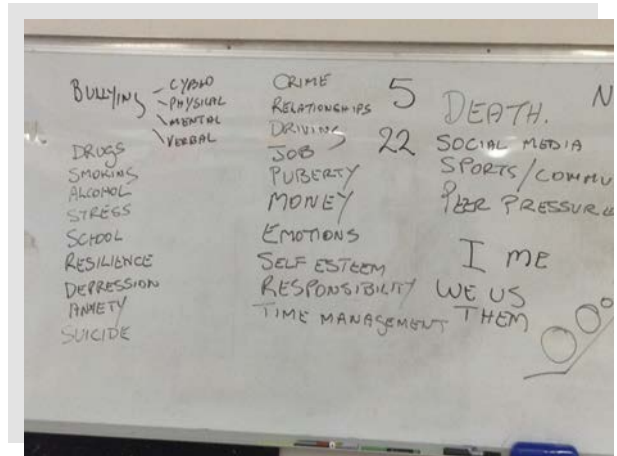 BULLYING - CYBER
- PHYSICAL
- MENTAL
\ VERBAL
DRUGS
SMOKING
ALCOHOL
STRESS
SCHOOL
RESILIENCE
DEPRESSION
ANXIETY
SUICIDE
CRIME
RELATIONSHIPS
DRIVING
JOB
PUBERTY
MONEY
EMOTIONS
SELF ESTEEM
RESPONSIBILITY
TIME MANAGEMENT
5
22
DEATH.
SOCIAL MEDIA
SPORTS/COMMU
PEER PRESSURE
I ME
WE US
THEM
N